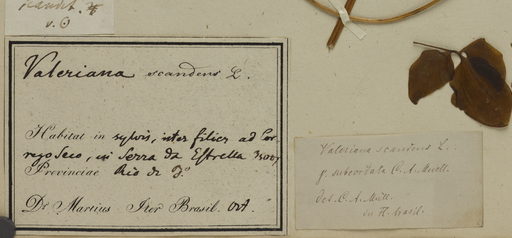 v. ⊙
Valeriana scandens L.
Habitat in sylvis, inter filices ad Cor-
rego Seco, in Serra da Estrella
Provinciae Rio de J°
Dr Martius Iter Brasil. Oct.
Valeriana scandens L.
γ. subcordata C. A. Müll.
Det. C. A. Müll.
in Fl. brasil.